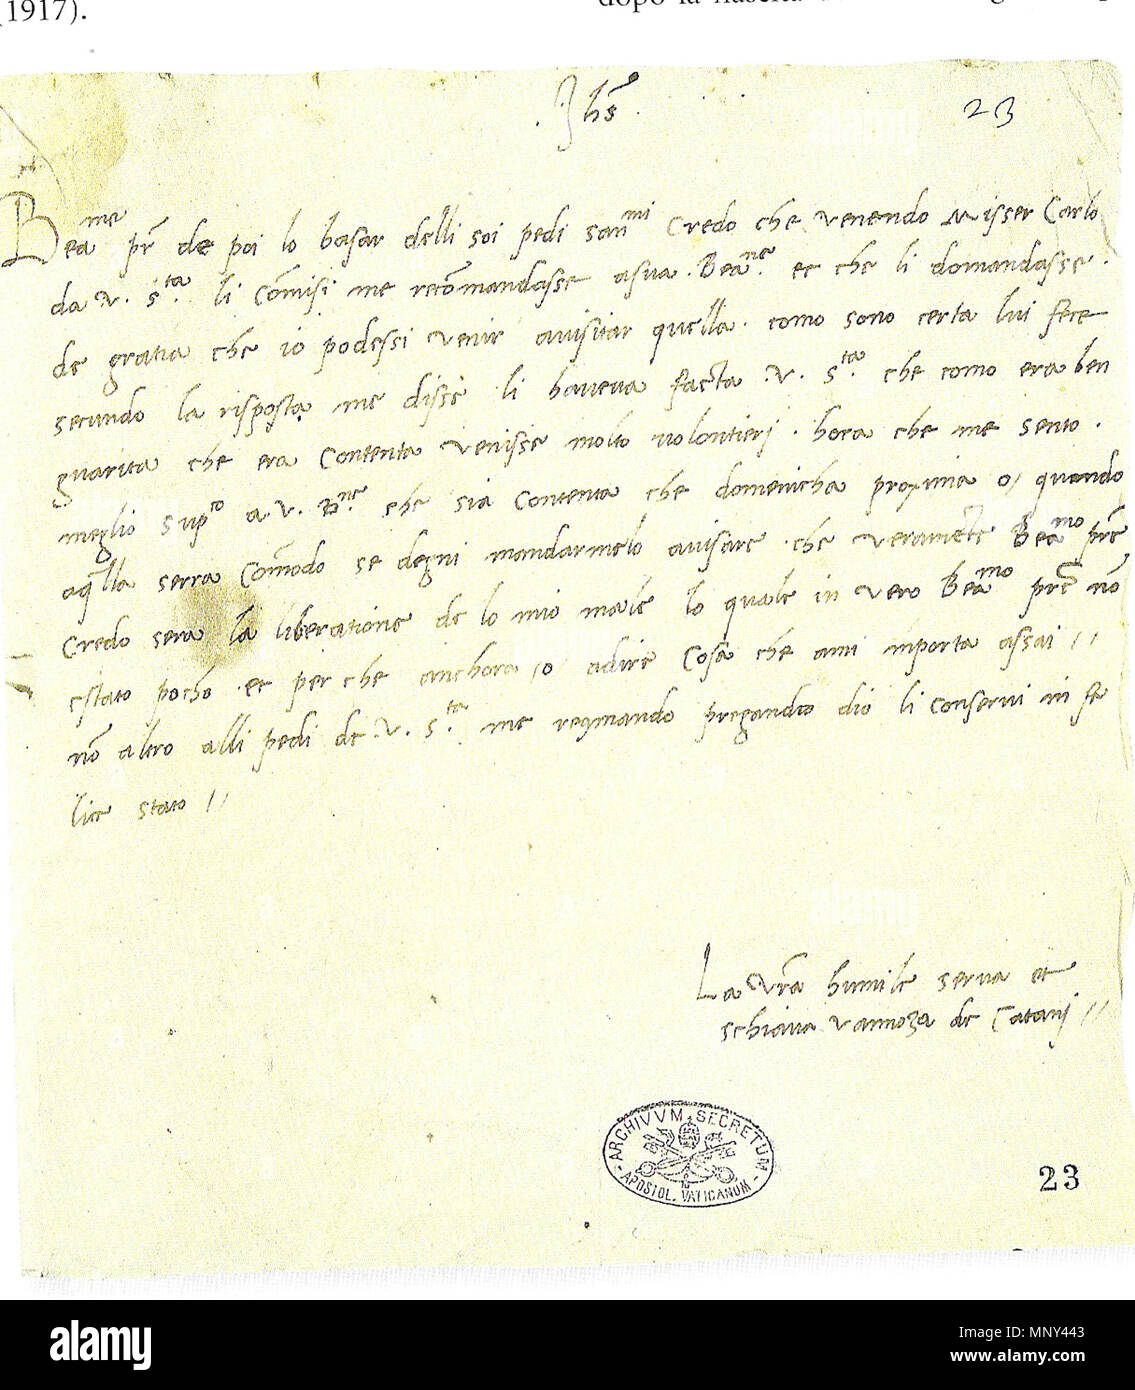 (1917).
. Jhs .
23
Beame pr de poi lo basar delli soi pedi sanmi Credo che venendo Misser Carlo
da v. sta. li Comisi me recomandasse asua. Beane. et che li domandasse.
de gratia che io podessi venir avisitar quella. como sono certa lui fece
secundo la risposta me disse li haveva facta .v. sta. che como era ben
guarita che era Contenta venisse molto volontierj. hora che me sento.
meglio supco a v. Bne che sia Contenta che domenicha proxima o/ quando
aqlla serra Comodo se degni mandarmelo avisare che veramete Beamo pre
Credo sera la liberatione de lo mio male lo quale in vero Beamo pre no
estato pocho. et per che anchora /o/ adire Cosa che ami inporta assai //
no altro alli pedi de .v. sta. me reqmando pregando dio li conservi in fe
lice stato //
La vra humile serva et
schiava vannoza de Catanj //
ARCHIVVM SECRETUM
APOSTOL. VATICANUM
23
alamy
Image ID: MNY443
www.alamy.com